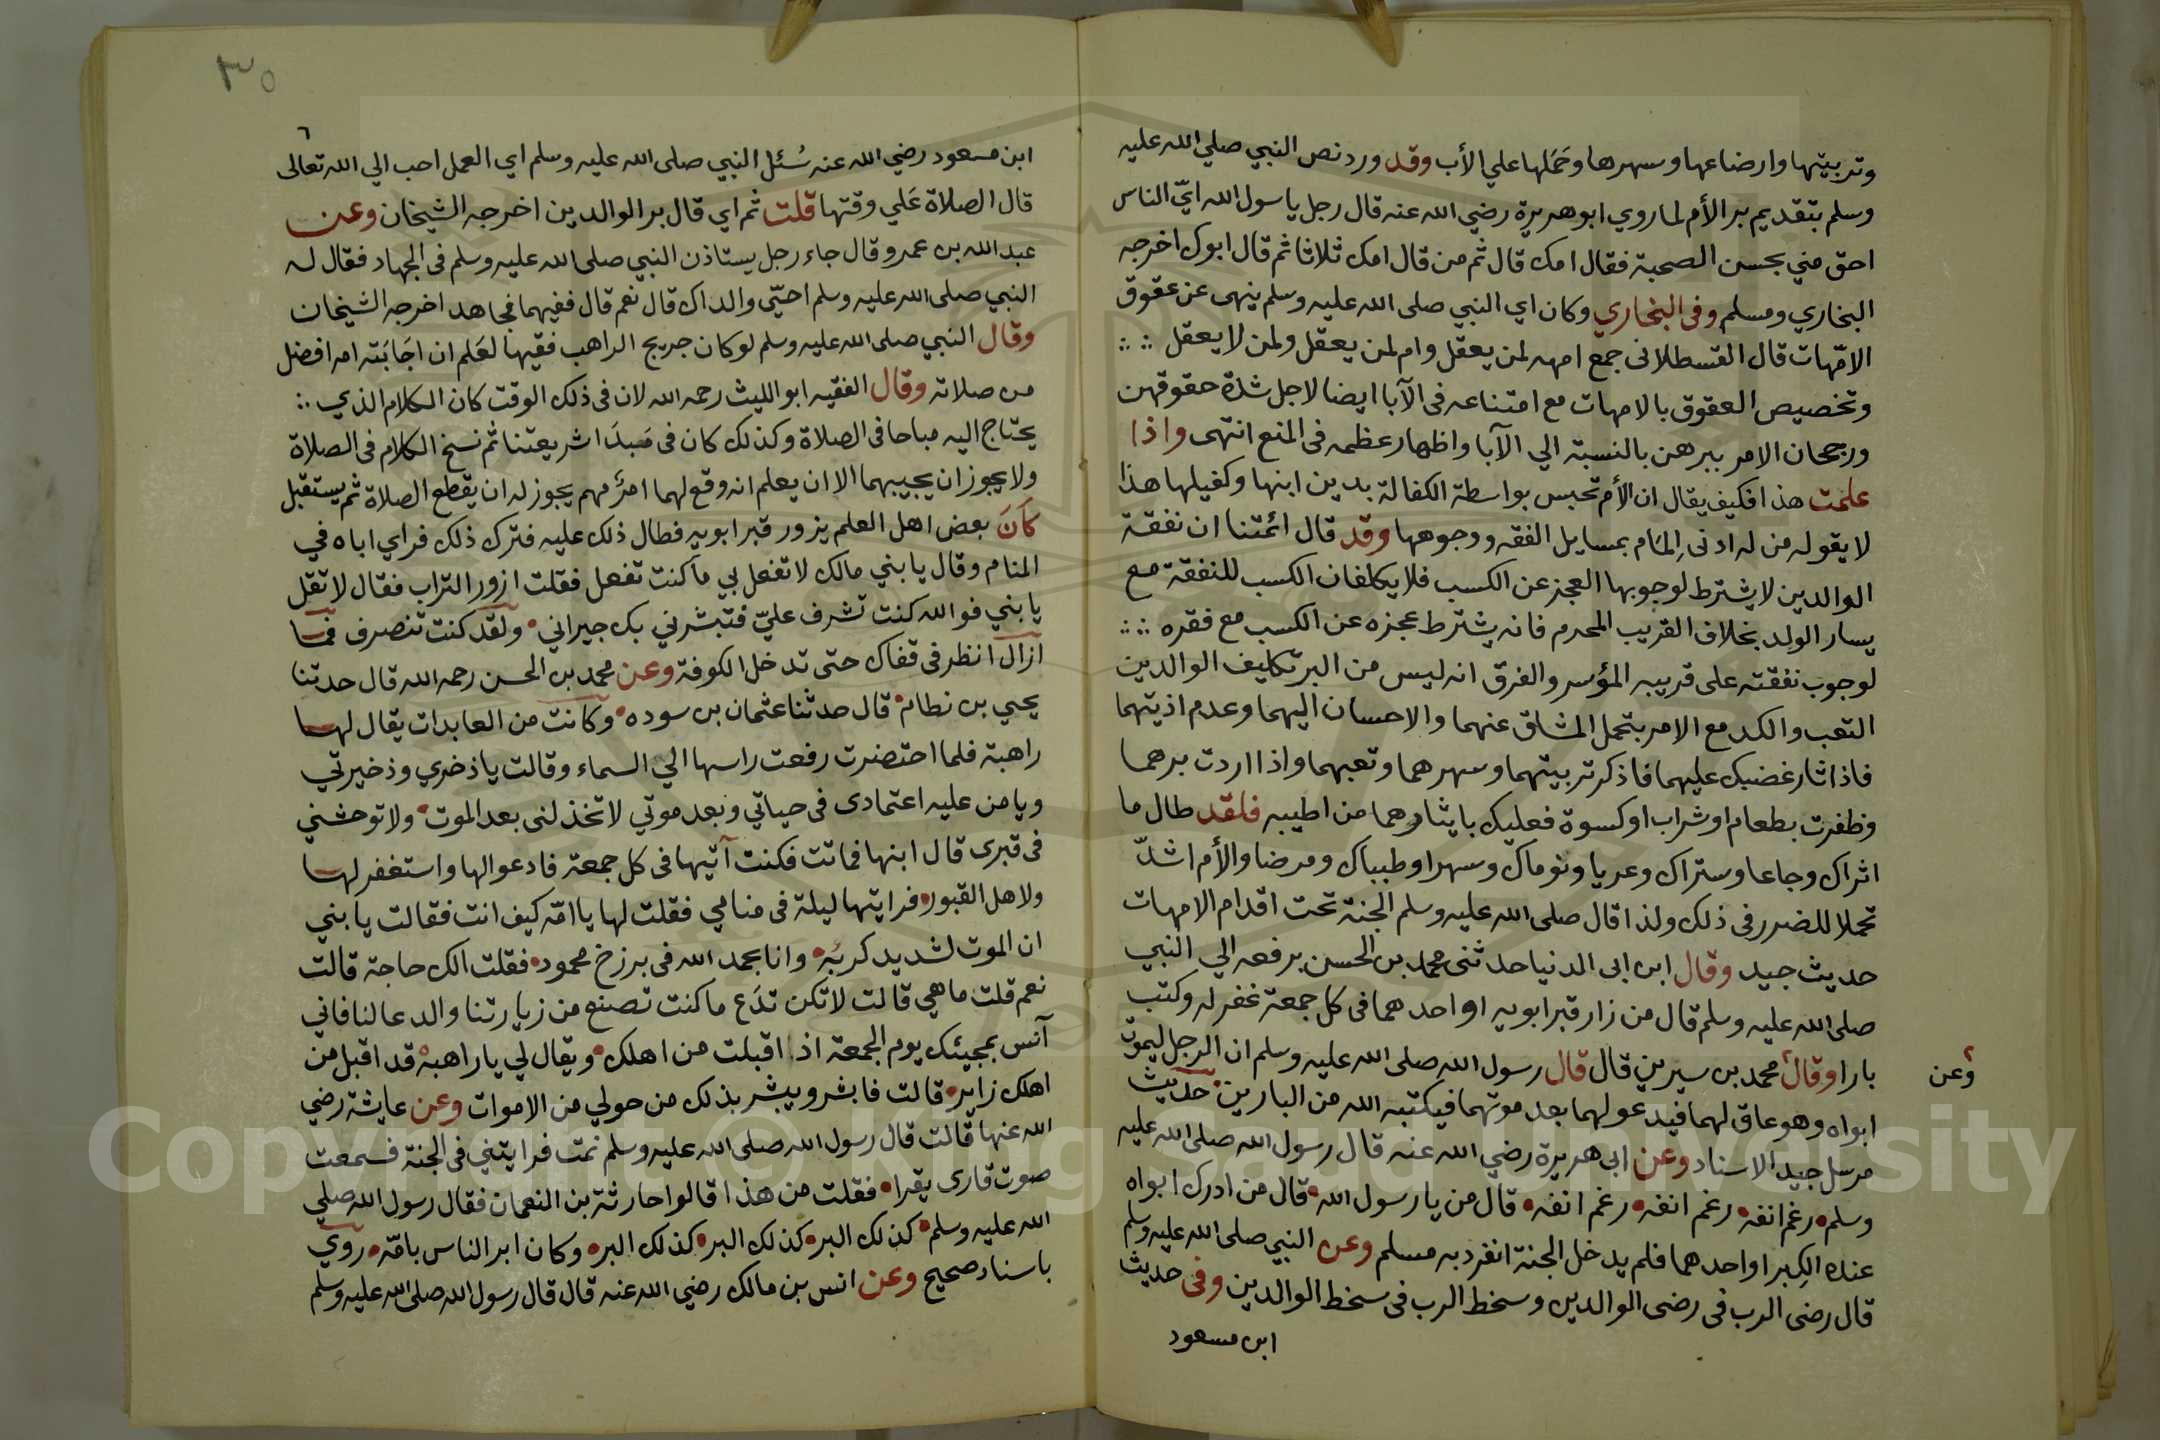 وتربيتها وارضاعها وسهرها وحملها علي الأب وقد ورد نص النبي صلي الله عليه
وسلم بتقديم بر الأم لما روي ابوهريرة رضي الله عنه قال رجل يا رسول الله ايّ الناس
احق مني بحسن الصحبة فقال امك قال ثم من قال امك ثلاثا ثم قال ابوك اخرجه
البخاري ومسلم وفى البخاري وكان اي النبي صلى الله عليه وسلم ينهى عن عقوق
الامّهات قال القسطلانى جمع امهه لمن يعقل وام لمن يعقل ولمن لا يعقل
وتخصيص العقوق بالامهات مع امتناعه فى الآبا ايضا لاجل شدة حقوقهن
ورجحان الامر ببرهن بالنسبة الي الآبا واظهار عظمه فى المنع انتهى واذا
علمت هذا فكيف يقال ان الأم تحبس بواسطة الكفالة بدين ابنها وكفيلها هذا
لا يقوله من له ادنى اِلمَام بمسايل الفقه ووجوهها وقد قال ائمتنا ان نفقة
الوالدين لا يشترط لوجوبها العجز عن الكسب فلا يكلفان الكسب للنفقة مع
يسار الولد بخلاف القريب المحرم فانه يشترط عجزه عن الكسب مع فقره
لوجوب نفقته على قريبه المؤسر والفرق انه ليس من البر تكليف الوالدين
التعب والكد مع الامر بتحمل المشاق عنهما والاحسان اليهما وعدم اذيتهما
فاذا ثار غضبك عليهما فاذكر تربيتهما وسهرهما وتعبهما واذا اردت برهما
وظفرت بطعام او شراب او كسوة فعليك بايثارهما من اطيبه فلقد طال ما
اثراك وجاعا وستراك وعريا ونوماك وسهرا وطبباك ومرضا والأم اشدّ
تحملا للضرر فى ذلك ولذا قال صلى الله عليه وسلم الجنة تحت اقدام الامهات
حديث جيد وقال ابن ابى الدنيا حدثنى محمد بن الحسن يرفعه الي النبي
صلى الله عليه وسلم قال من زار قبر ابويه او احدهما فى كل جمعة غفر له وكتب
بارا وقال محمد بن سيرين قال قال رسول الله صلى الله عليه وسلم ان الرجل ليموت
وعن
ابواه وهو عاق لهما فيدعو لهما بعد موتهما فيكتبه الله من البارين حديث
مرسل جيد الاسناد وعن ابى هريرة رضي الله عنه قال رسول الله صلى الله عليه
وسلم رغم انفه رغم انفه رغم انفه قال من يا رسول الله قال من ادرك ابواه
عنده الكِبر او احدهما فلم يدخل الجنة انفرد به مسلم وعن النبي صلى الله عليه وسلم
قال رضى الرب فى رضى الوالدين وسخط الرب فى سخط الوالدين وفى حديث
ابن مسعود
٣٥
٦
ابن مسعود رضي الله عنه سُئل النبي صلى الله عليه وسلم اي العمل احب الي الله تعالى
قال الصلاة عَلي وقتها قلت ثم اي قال بر الوالدين اخرجه الشيخان وعن
عبد الله بن عمرو قال جاء رجل يستاذن النبي صلى الله عليه وسلم فى الجهاد فقال له
النبي صلى الله عليه وسلم احيّ والداك قال نعم قال ففيهما فجاهد اخرجه الشيخان
وقال النبي صلى الله عليه وسلم لو كان جريج الراهب فقيها لعَلم ان اجَابَته امه افضل
من صلاته وقال الفقيه ابو الليث رحمه الله لان فى ذلك الوقت كان الكلام الذي
يحتاج اليه مباحا فى الصلاة وكذلك كان فى مَبدَا شريعتنا ثم نسخ الكلام فى الصلاة
ولا يجوز ان يجيبهما الا ان يعلم انه وقع لهما امرٌ مهم يجوز له ان يقطع الصلاة ثم يستقبل
كَانَ بعض اهل العلم يزور قبر ابويه فطال ذلك عليه فترك ذلك فراي اباه في
المنام وقال يا بني مالك لا تفعل بي ما كنت تفعل فقلت ازور التراب فقال لا تقل
يا بني فوالله كنت تشرف عليّ فتبشرني بك جيراني ولقد كنت تنصرف فما
ازال انظر فى قفاك حتى تدخل الكوفة وعن محمد بن الحسن رحمه الله قال حدثنا
يحيي بن نظام قال حدثنا عثمان بن سوده وكانت من العابدات يقال لها
راهبة فلما احتضرت رفعت راسها الي السماء وقالت يا ذخري وذخيرتي
ويا من عليه اعتمادى فى حياتي وبعد موتي لا تخذلنى بعد الموت ولا توحشني
فى قبرى قال ابنها فماتت فكنت آتيها فى كل جمعة فادعو لها واستغفر لها
ولاهل القبور فرايتها ليلة فى منامي فقلت لها يا امّه كيف انت فقالت يا بني
ان الموت لشديد كربُه وانا بحمد الله فى برزخ محمود فقلت الك حاجة قالت
نعم قلت ما هي قالت لا تكن تدَع ما كنت تصنع من زيارتنا والدعا لنا فاني
آنس بمجيئك يوم الجمعة اذا اقبلت من اهلك ويقال لي يا راهبة قد اقبل من
اهلك زاير قالت فابشر ويبشر بذلك من حولي من الاموات وعن عايشة رضي
الله عنها قالت قال رسول الله صلى الله عليه وسلم نمت فرايتني فى الجنة فسمعت
صوت قارى يقرا فقلت من هذا قالوا حارثة بن النعمان فقال رسول الله صلي
الله عليه وسلم كذلك البر كذلك البر كذلك البر وكان ابر الناس بامّه روي
باسناد صحيح وعن انس بن مالك رضي الله عنه قال قال رسول الله صلى الله عليه وسلم
Copyright © King Saud University